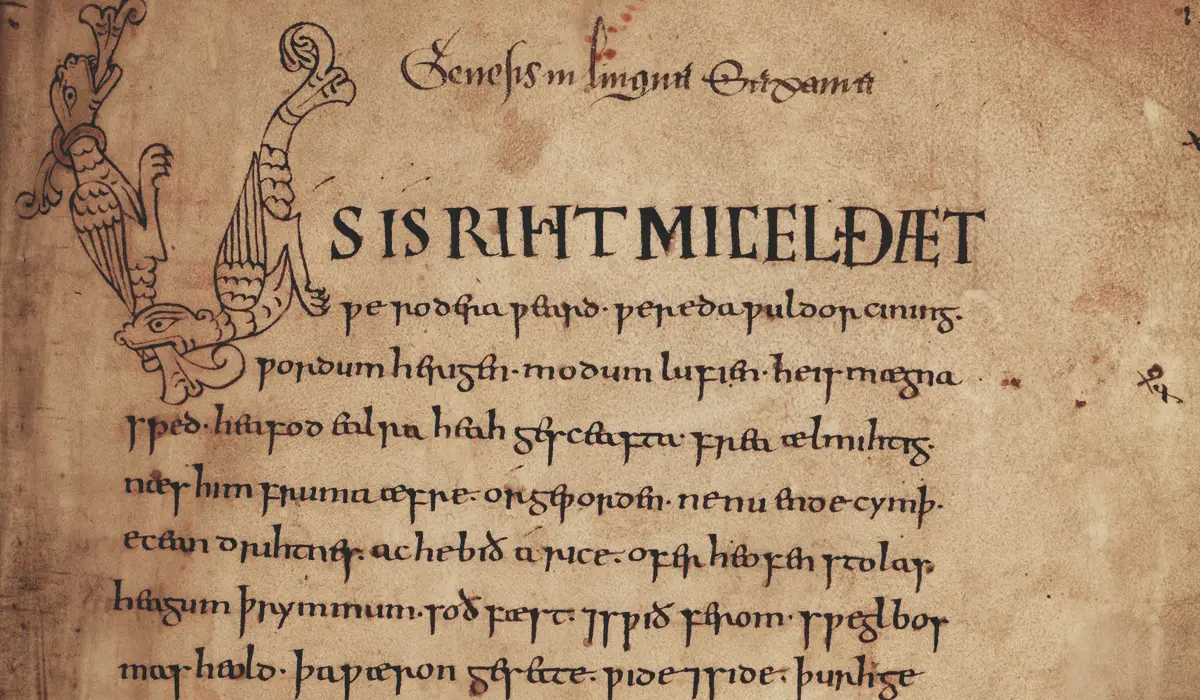 Genesis in lingua Saxania
US IS RIHT MICEL ÐÆT
ƿe rodera ƿeard· ƿereda ƿuldor cining.
ƿordum herigen· modum lufien· heis mægna
sped· heafod ealra heah gesceafta· frea ælmihtig.
næs him fruma æfre· or geƿorden· ne nu ende cymþ·
ecean drihtnes· ac he bið a rice· ofer heofen stolas.
heagum þrymmum· soð fæst· ⁊sƿið feorm· sƿegl bos
mas heold· þa ƿæron gesette· ƿide ⁊side· þurh ge